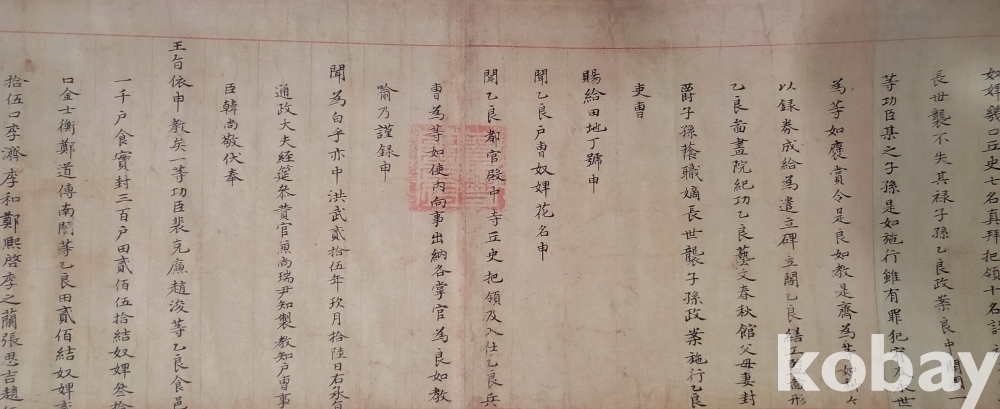 奴婢幾口丘史七名真拜把領十名許
長世襲不失其禄子孫乙良政案良中開國一
等功臣某之子孫是如施行雖有罪犯宥及永世
為等如褒賞令是良如教是齊為等如
以録券成給為遣立碑立閣乙良繕工
乙良啚畫院紀功乙良藝文春秋館父母妻封
爵子孫蔭職嫡長世襲子孫政案施行乙良
吏曹
賜給田地丁號申
聞乙良户曹奴婢花名申
聞乙良都官殿中寺丘史把領及入仕乙良兵
曹為等如使內向事出納各掌官為良如教
喻乃謹録申
聞為白乎亦中洪武貳拾伍年玖月拾陸日右丞旨
通政大夫經筵參贊官兼尚瑞尹知製教知户曹事
臣韓尚敬伏奉
王旨依申教矣一等功臣裴克廉趙浚等乙良食邑
一千户食實封三百户田貳佰伍拾結奴婢叁拾
口金士衡鄭道傳南誾等乙良田貳佰結奴婢
拾伍口李濟李和鄭熙啓李之蘭張思吉趙
kobay